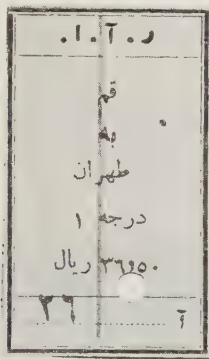 ر.آ.ا.
قم
به
طهران
درجه ۱
۳۶٫۵۰ ریال
۳۶ آ